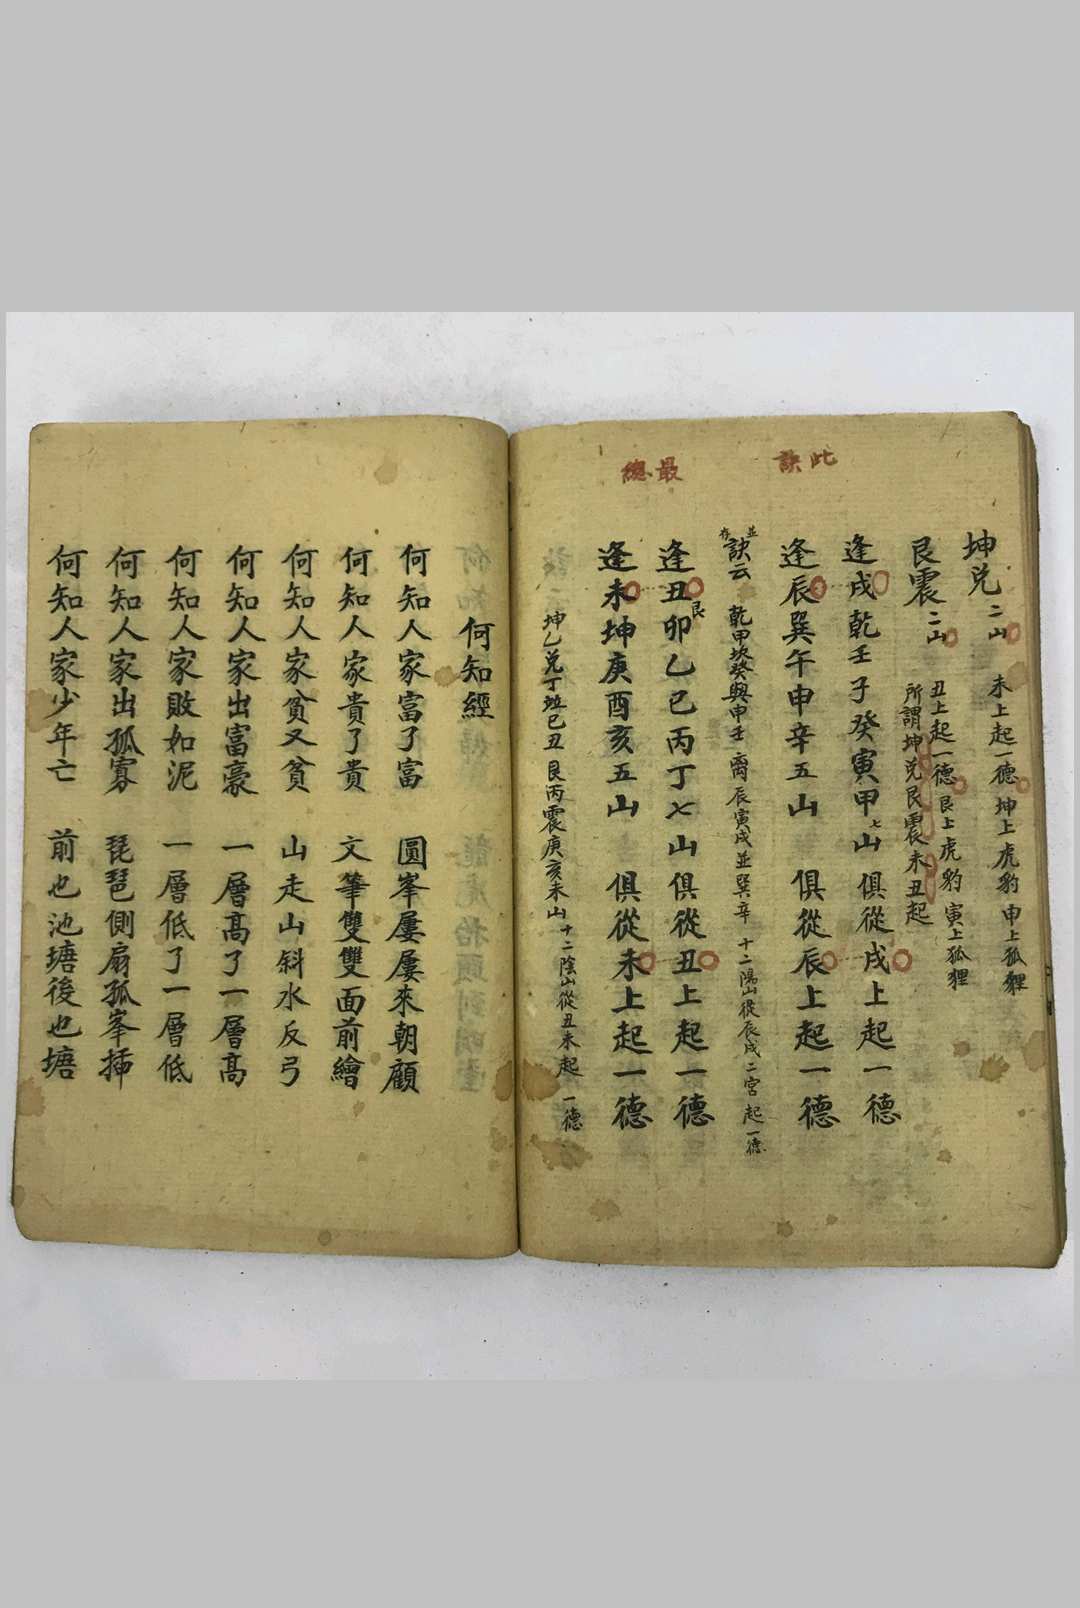 此訣
最總
坤兌二山 未上起一德 坤上虎豹 申上狐狸
艮震二山 丑上起一德 艮上虎豹 寅上狐狸
所謂坤兌艮震未丑起
逢戌乾壬子癸寅甲七山 俱從戌上起一德
逢辰巽午申辛五山 俱從辰上起一德
並存
訣云 乾甲坎癸與申壬 离辰寅戌並巽辛 十二陽山從辰戌二宮起一德
逢丑艮卯乙巳丙丁七山 俱從丑上起一德
逢未坤庚酉亥五山 俱從未上起一德
坤乙兌丁並巳丑 艮丙震庚亥未山 十二陰山從丑未起一德
何知經
何知人家富了富 圓峯屢屢來朝顧
何知人家貴了貴 文筆雙雙面前繪
何知人家貧又貧 山走山斜水反弓
何知人家出富豪 一層高了一層高
何知人家敗如泥 一層低了一層低
何知人家出孤寡 琵琶側扇孤峯揷
何知人家少年亡 前也池塘後也塘